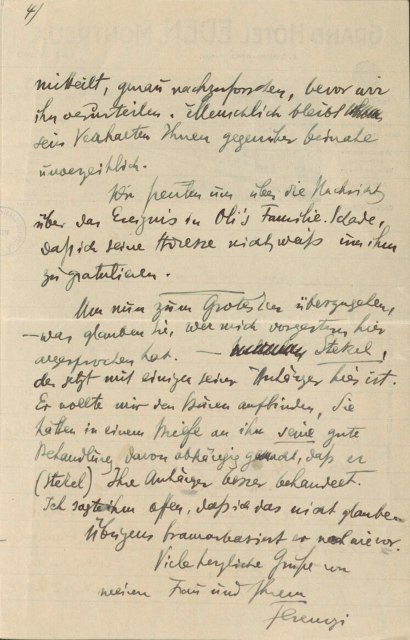 4/
mitteilt, genau nachzuforschen, bevor wir
ihn verurteilen. Menschlich bleibt
sein Verhalten Ihnen gegenüber beinahe
unverzeihlich.
Wir freuten uns über die Nachricht
über das Ereignis in Oli's Familie. Schade,
daß ich seine Adresse nicht weiß um ihm
zu gratulieren.
Um nun zum Grotesken überzugehen,
– was glauben Sie, wer mich vorgestern hier
angesprochen hat. – Stekel,
der jetzt mit einigen seiner Anhänger hier ist.
Er wollte mir den Bären aufbinden, Sie
hätten in einem Briefe an ihn seine gute
Behandlung davon abhängig gemacht, daß er
(Stekel) Ihre Anhänger besser behandelt.
Ich sagte ihm offen, daß ich das nicht glaube.
Übrigens bramarbasiert er wie nie zuvor.
Viele herzliche Grüße von
meiner Frau und Ihrem
Ferenczi